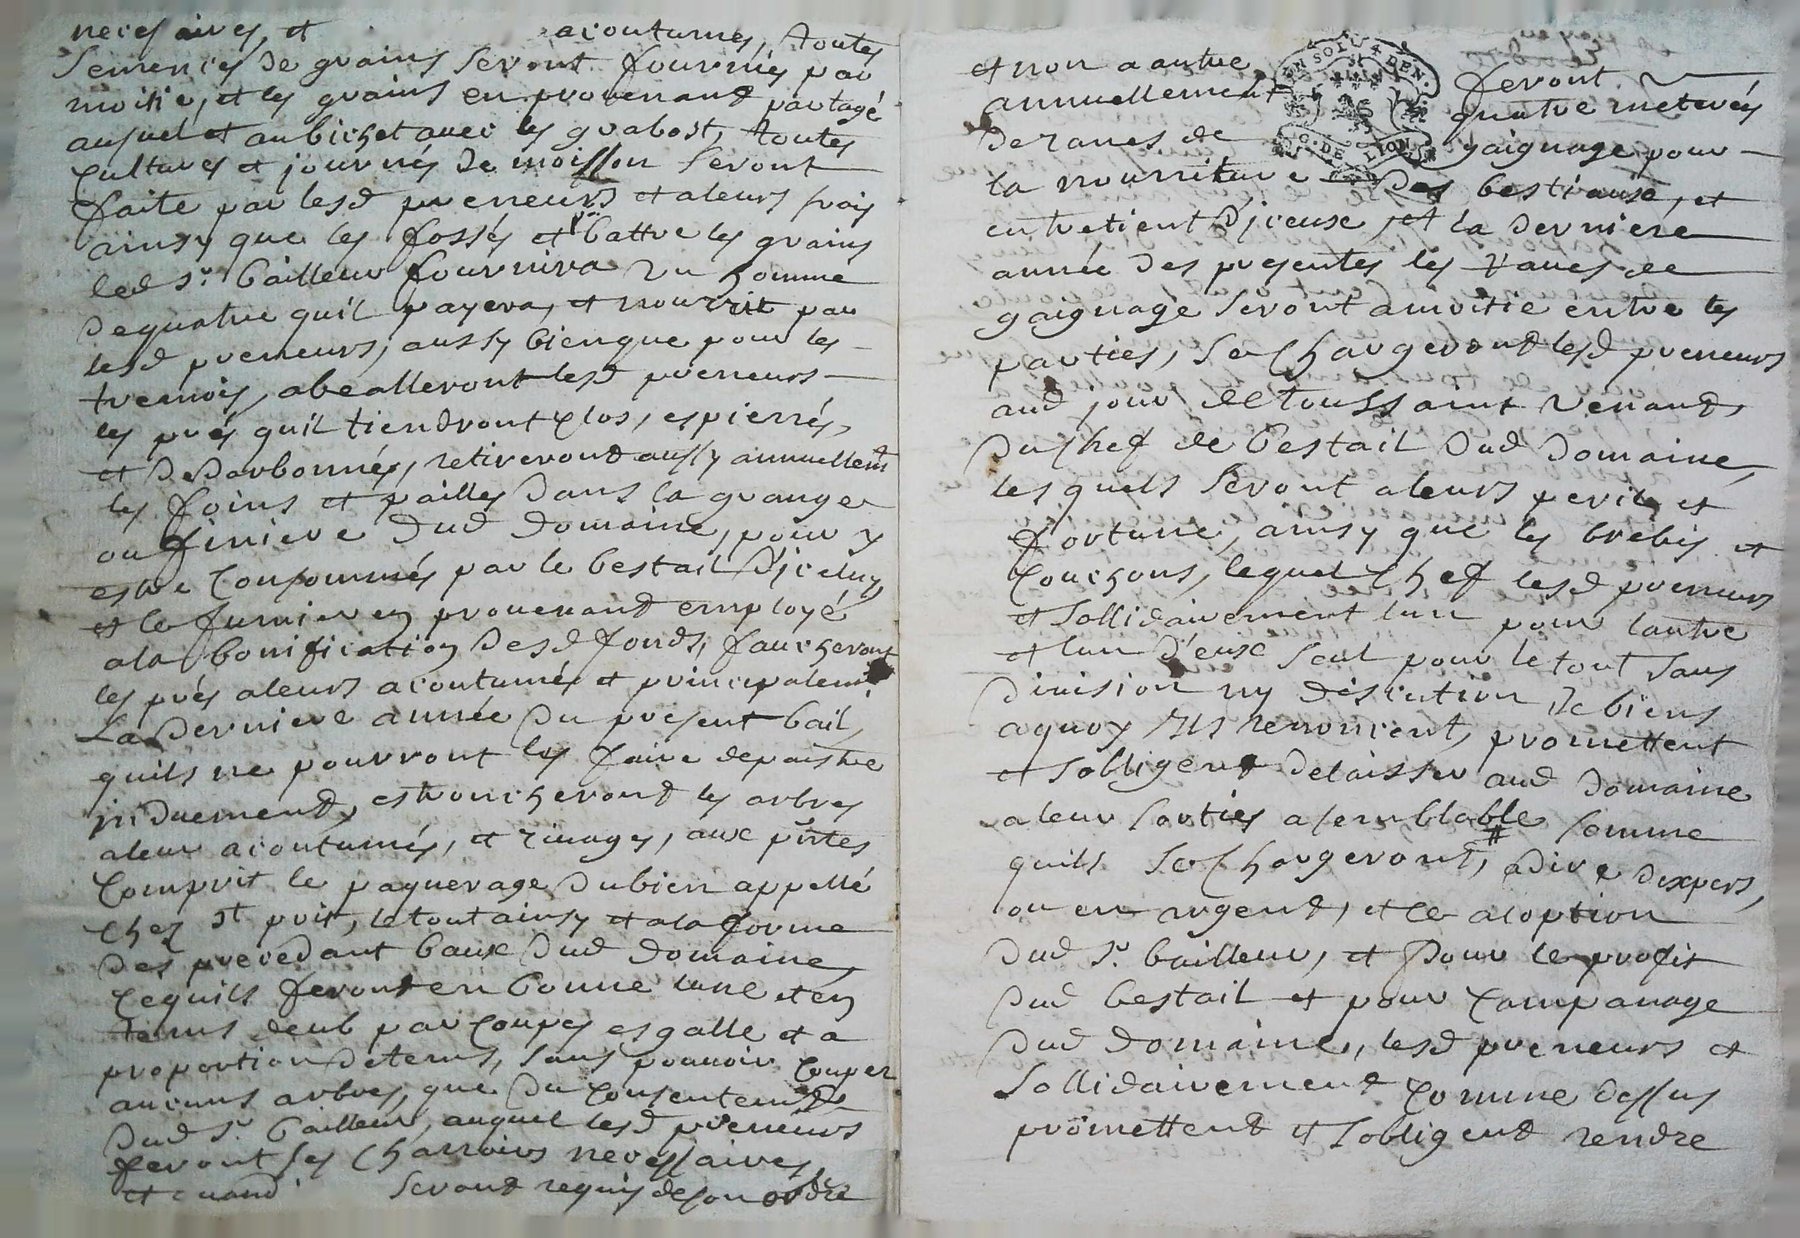 necesaires, et acoutumes, toutes
Semences de grains seront fournies par
moitié, et les grains en provenant partagé
ausuel et aubichet avec les grabost, toutes
cultures et journés de moisson seront
faite par lesd preneurs et aleurs frais
ainsy que les fossés et battre les grains
led sr. bailleur fournira un homme
de quatre quil payera, et nourrit par
lesd preneurs, aussy bien que pour les
tremois, abealleront lesd preneurs
les prés quil tiendront clos, espierrés,
et dedarbonnés, retireront aussy annuellemt
les foins et pailles dans la grange
ou finiere dud domaine, pour y
estre consommés par le bestail diceluy,
et le fumier en provenant employé
ala bonification desd fonds, faucheront
les prés aleurs acoutumés et principalemt
La derniere année du present bail,
quils ne pourront les faire depaistre
induement, estroncheront les arbres
aleur acoutumés, et rivages, aux
comprit le paquerage dubien appellé
chez st poit, le tout ainsy et ala forme
des precedant baux dud domaine,
cequils feront en bonne lune et en
tems deub par coupes esgalle et a
proportion de tems, sans pouvoir couper
aucuns arbres, que du consentement
dud sr. bailleur, auquel lesd preneurs
feront ses charrois necessaires,
et quand seront requis de son ordre
et non a autre feront
annuellement quatre meterés
de raves de gaignage pour
la nourriture des bestiaux, et
entretient diceux, et la derniere
année des presentes les raves de
gaignage seront a moitie entre les
parties, se chargeront lesd preneurs
aud jour de toussaint venant,
du chef de bestail dud domaine,
lesquels seront aleurs perils et
fortune, ainsy que les brebis et
couchons, lequel chef lesd preneurs
et sollidairement lun pour lautre
et lun d'eux seul pour le tout sans
division ny discution de biens
aquoy ils renoncent, promettent
et sobligent delaisser aud domaine
aleur sorties asemblable somme
quils se chargeront, # a dire dexpers,
ou en argent, et ce aloption
dud sr. bailleur, et pour le profit
dud bestail et pour lampanage
dud domaine, lesd preneurs et
sollidairement comme dessus
promettent et sobligent rendre
GEN. DE LION